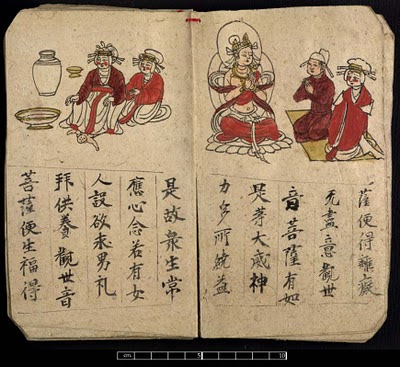 薩便得離癡
无盡意觀世
音菩薩有如
是䒭大威神
力多所饒益
是故衆生常
應心念若有女
人設欲求男礼
拜供養觀世音
菩薩便生福得
cm 5 10